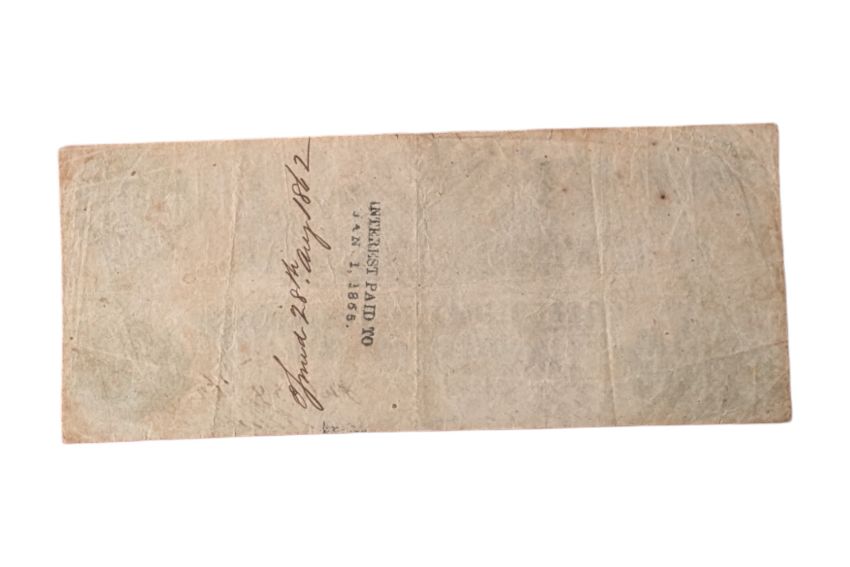 Issued 28th. Aug 1862
INTEREST PAID TO
JAN 1, 1865.